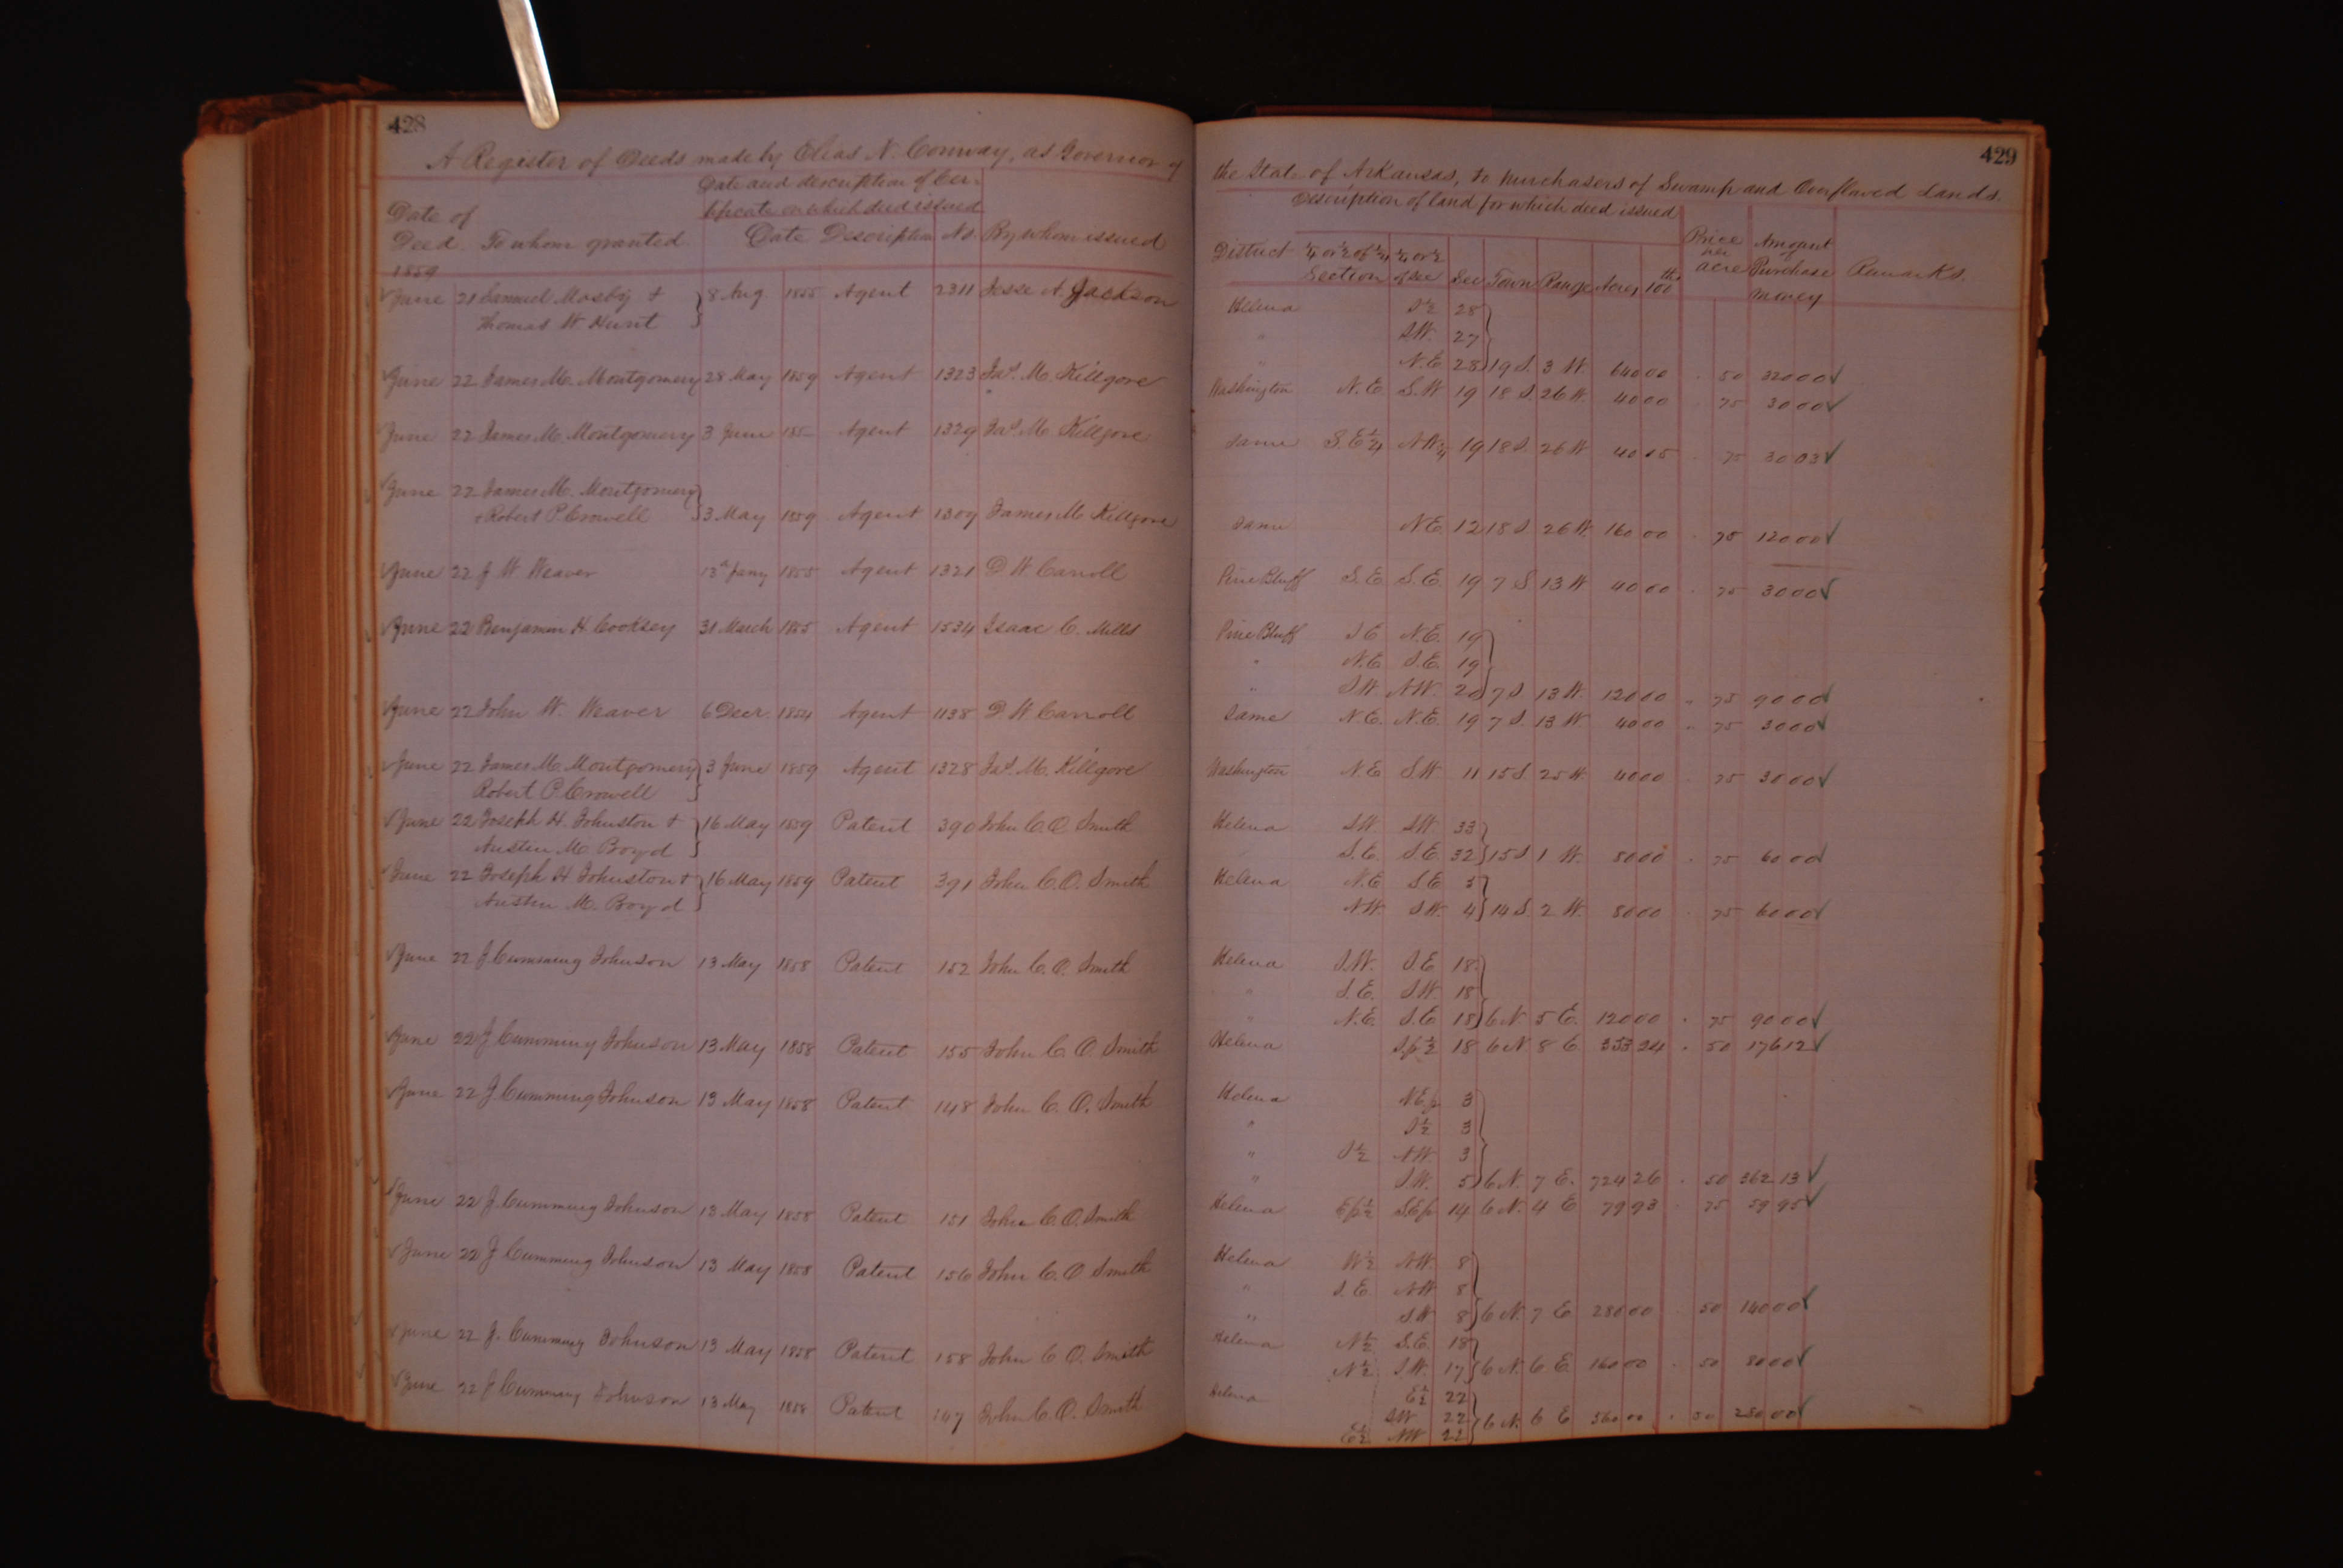 428
A Register of Deeds made by Elias N. Conway, as Governor of
Date and description of Cer-
tificate on which deed issued
Date of
Deed. To whom granted. Date Description No. By whom issued
1859
June 21 Samuel Mosby + 8 Aug 1855 Agent 2311 Jesse A. Jackson
Thomas W Hunt
June 22 James M. Montgomery 28 May 1859 Agent 1323 Jas. M. Killgore
June 22 James M. Montgomery 3 June 185 Agent 1329 Jas. M. Killgore
June 22 James M. Montgomery
+ Robert P. Crowell 3 May 1859 Agent 1309 James M. Killgore
June 22 J W Weaver 13 Jany 1855 Agent 1321 D W Carroll
June 22 Benjamin H Cooksey 31 March 1855 Agent 1534 Isaac C. Mills
June 22 John W. Weaver 6 Decr. 1854 Agent 1138 D. W Carroll
June 22 James M. Montgomery 3 June 1859 Agent 1328 Jas. M. Killgore
Robert P. Crowell
June 22 Joseph H. Johnston + 16 May 1859 Patent 390 John C. O. Smith
Austin M. Boyd
June 22 Joseph H Johnston + 16 May 1859 Patent 391 John C. O. Smith
Austin M. Boyd
June 22 J Cumming Johnson 13 May 1858 Patent 152 John C. O. Smith
June 22 J Cumming Johnson 13 May 1858 Patent 155 John C. O. Smith
June 22 J Cumming Johnson 13 May 1858 Patent 148 John C. O. Smith
June 22 J. Cumming Johnson 13 May 1858 Patent 151 John C. O. Smith
June 22 J Cumming Johnson 13 May 1858 Patent 156 John C. O Smith
June 22 J. Cumming Johnson 13 May 1858 Patent 158 John C O. Smith
June 22 J Cumming Johnson 13 May 1858 Patent 147 John C. O. Smith
429
the State of Arkansas, to purchasers of Swamp and Overflowed Lands.
Description of land for which deed issued
District ¼ or ½ of ¼ ¼ or ½ Price Amount
Section of Sec Sec Town Range Acres 100ths per acre Purchase money Remarks.
Helena S½ 28
" SW. 27
" N.E. 28 19 S. 3 W. 640 00 . 50 320 00
Washington N.E. S.W 19 18 S. 26 W. 40 00 75 30 00
Same S.E¼ NW¼ 19 18 S. 26 W 40 05 . 75 30 03
Same N.E. 12 18 S. 26 W. 160 00 . 75 120 00
Pine Bluff S.E. S.E. 19 7 S. 13 W 40 00 . 75 30 00
Pine Bluff S E N.E. 19
" N.E. S.E. 19
" S.W. N.W. 20 7 S. 13 W. 120 00 " 75 90 00
Same N.E. N.E. 19 7 S. 13 W 40 00 " 75 30 00
Washington N.E S.W. 11 15 S. 25 W. 40 00 . 75 30 00
Helena S.W. S.W. 33
S.E. S.E. 32 15 S 1 W. 80 00 . 75 60 00
Helena N.E S.E 5
N.W. S.W. 4 14 S. 2 W. 80 00 . 75 60 00
Helena S.W. S.E 18
" S.E. S.W. 18
" N.E. S.E 18 6 N. 5 E. 120 00 . 75 90 00
Helena Sp½ 18 6 N 8 E 353 24 . 50 176 12
Helena N.E.p 3
" S½ 3
" S½ N.W. 3
" S.W. 5 6 N. 7 E. 724 26 . 50 362 13
Helena Ep½ S.Ep 14 6 N. 4 E 79 93 . 75 59 95
Helena W½ NW. 8
" S.E. NW 8
" S.W 8 6 N. 7 E 280 00 . 50 140 00
Helena N½ S.E. 18
N½ S.W. 17 6 N. 6 E. 160 00 . 50 80 00
Helena E½ 22
SW 22 6 N. 6 E 560 00 . 50 280 00
E½ NW 22